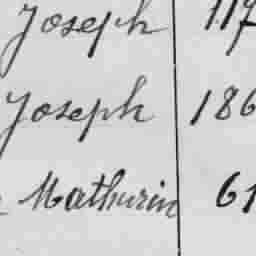 Joseph 117
Joseph 186
Mathurin 61